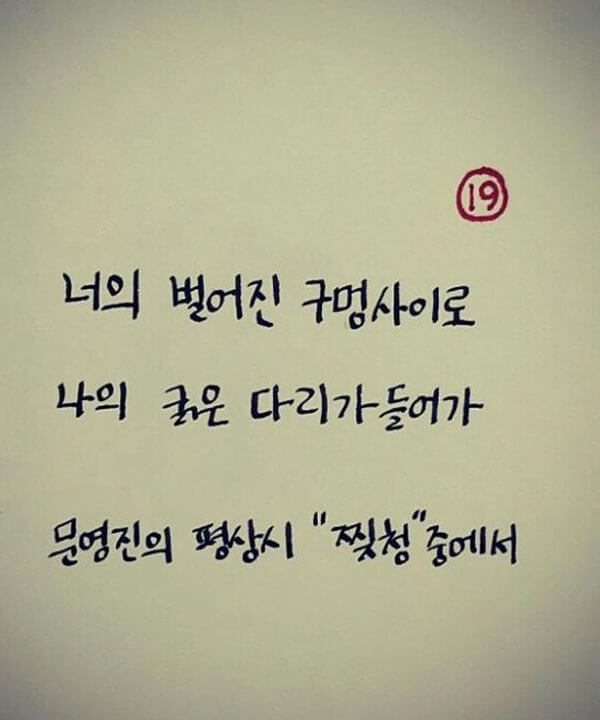 19
너의 벌어진 구멍사이로
나의 굵은 다리가들어가
문영진의 평상시 "찢청"중에서